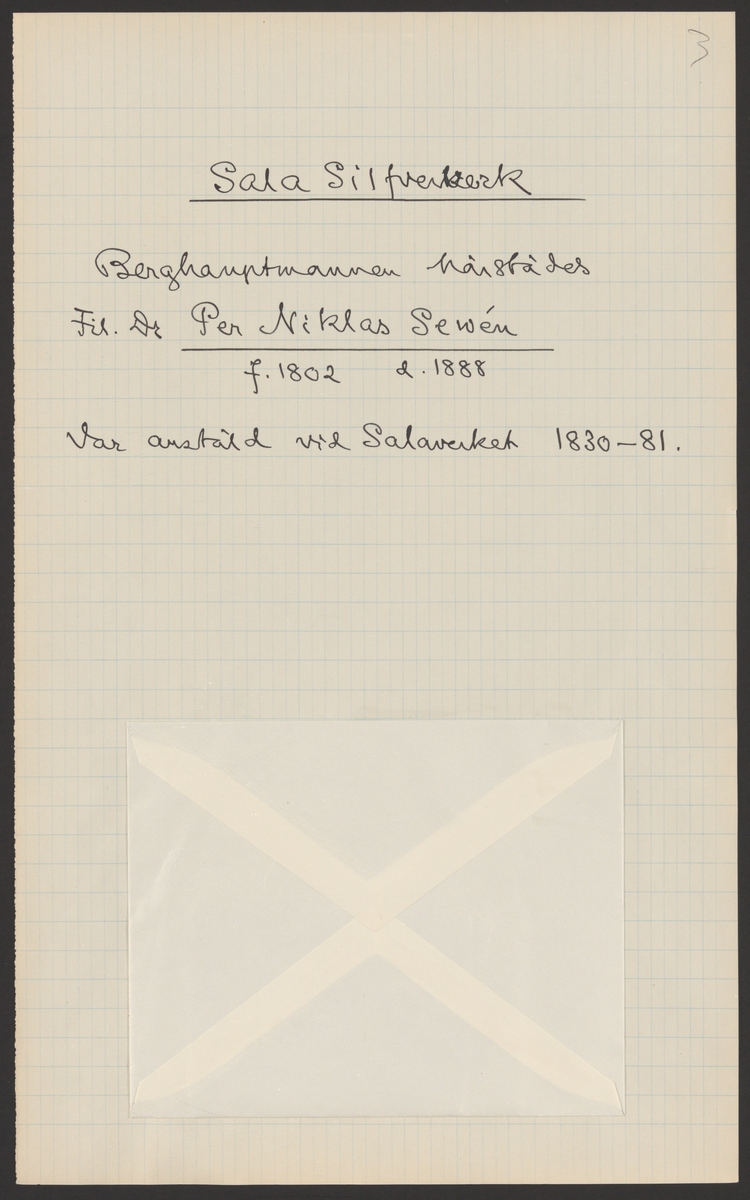 3
Sala Silfverkerk
Berghauptmannen härstädes
Fil. Dr Per Niklas Sewén
f. 1802 d. 1888
Var anstäld vid Salaverket 1830–81.